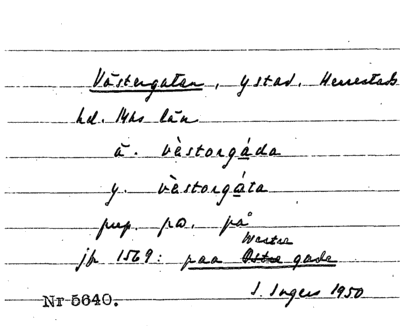 Västergatan, Ystad, Herrestads
hd. Mhs län
ä. vèstorgáda
y. vèstorgáta
prep. pa, på
Westra
jfr 1569: paa Østre gade
Nr 5640. I. Ingers 1950